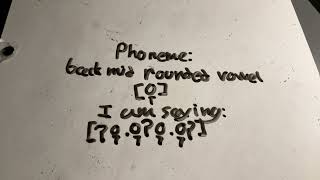 Phoneme:
back mid rounded vowel
[o̞]
I am saying:
[ʔo̞.o̞ʔo̞.o̞ʔ]